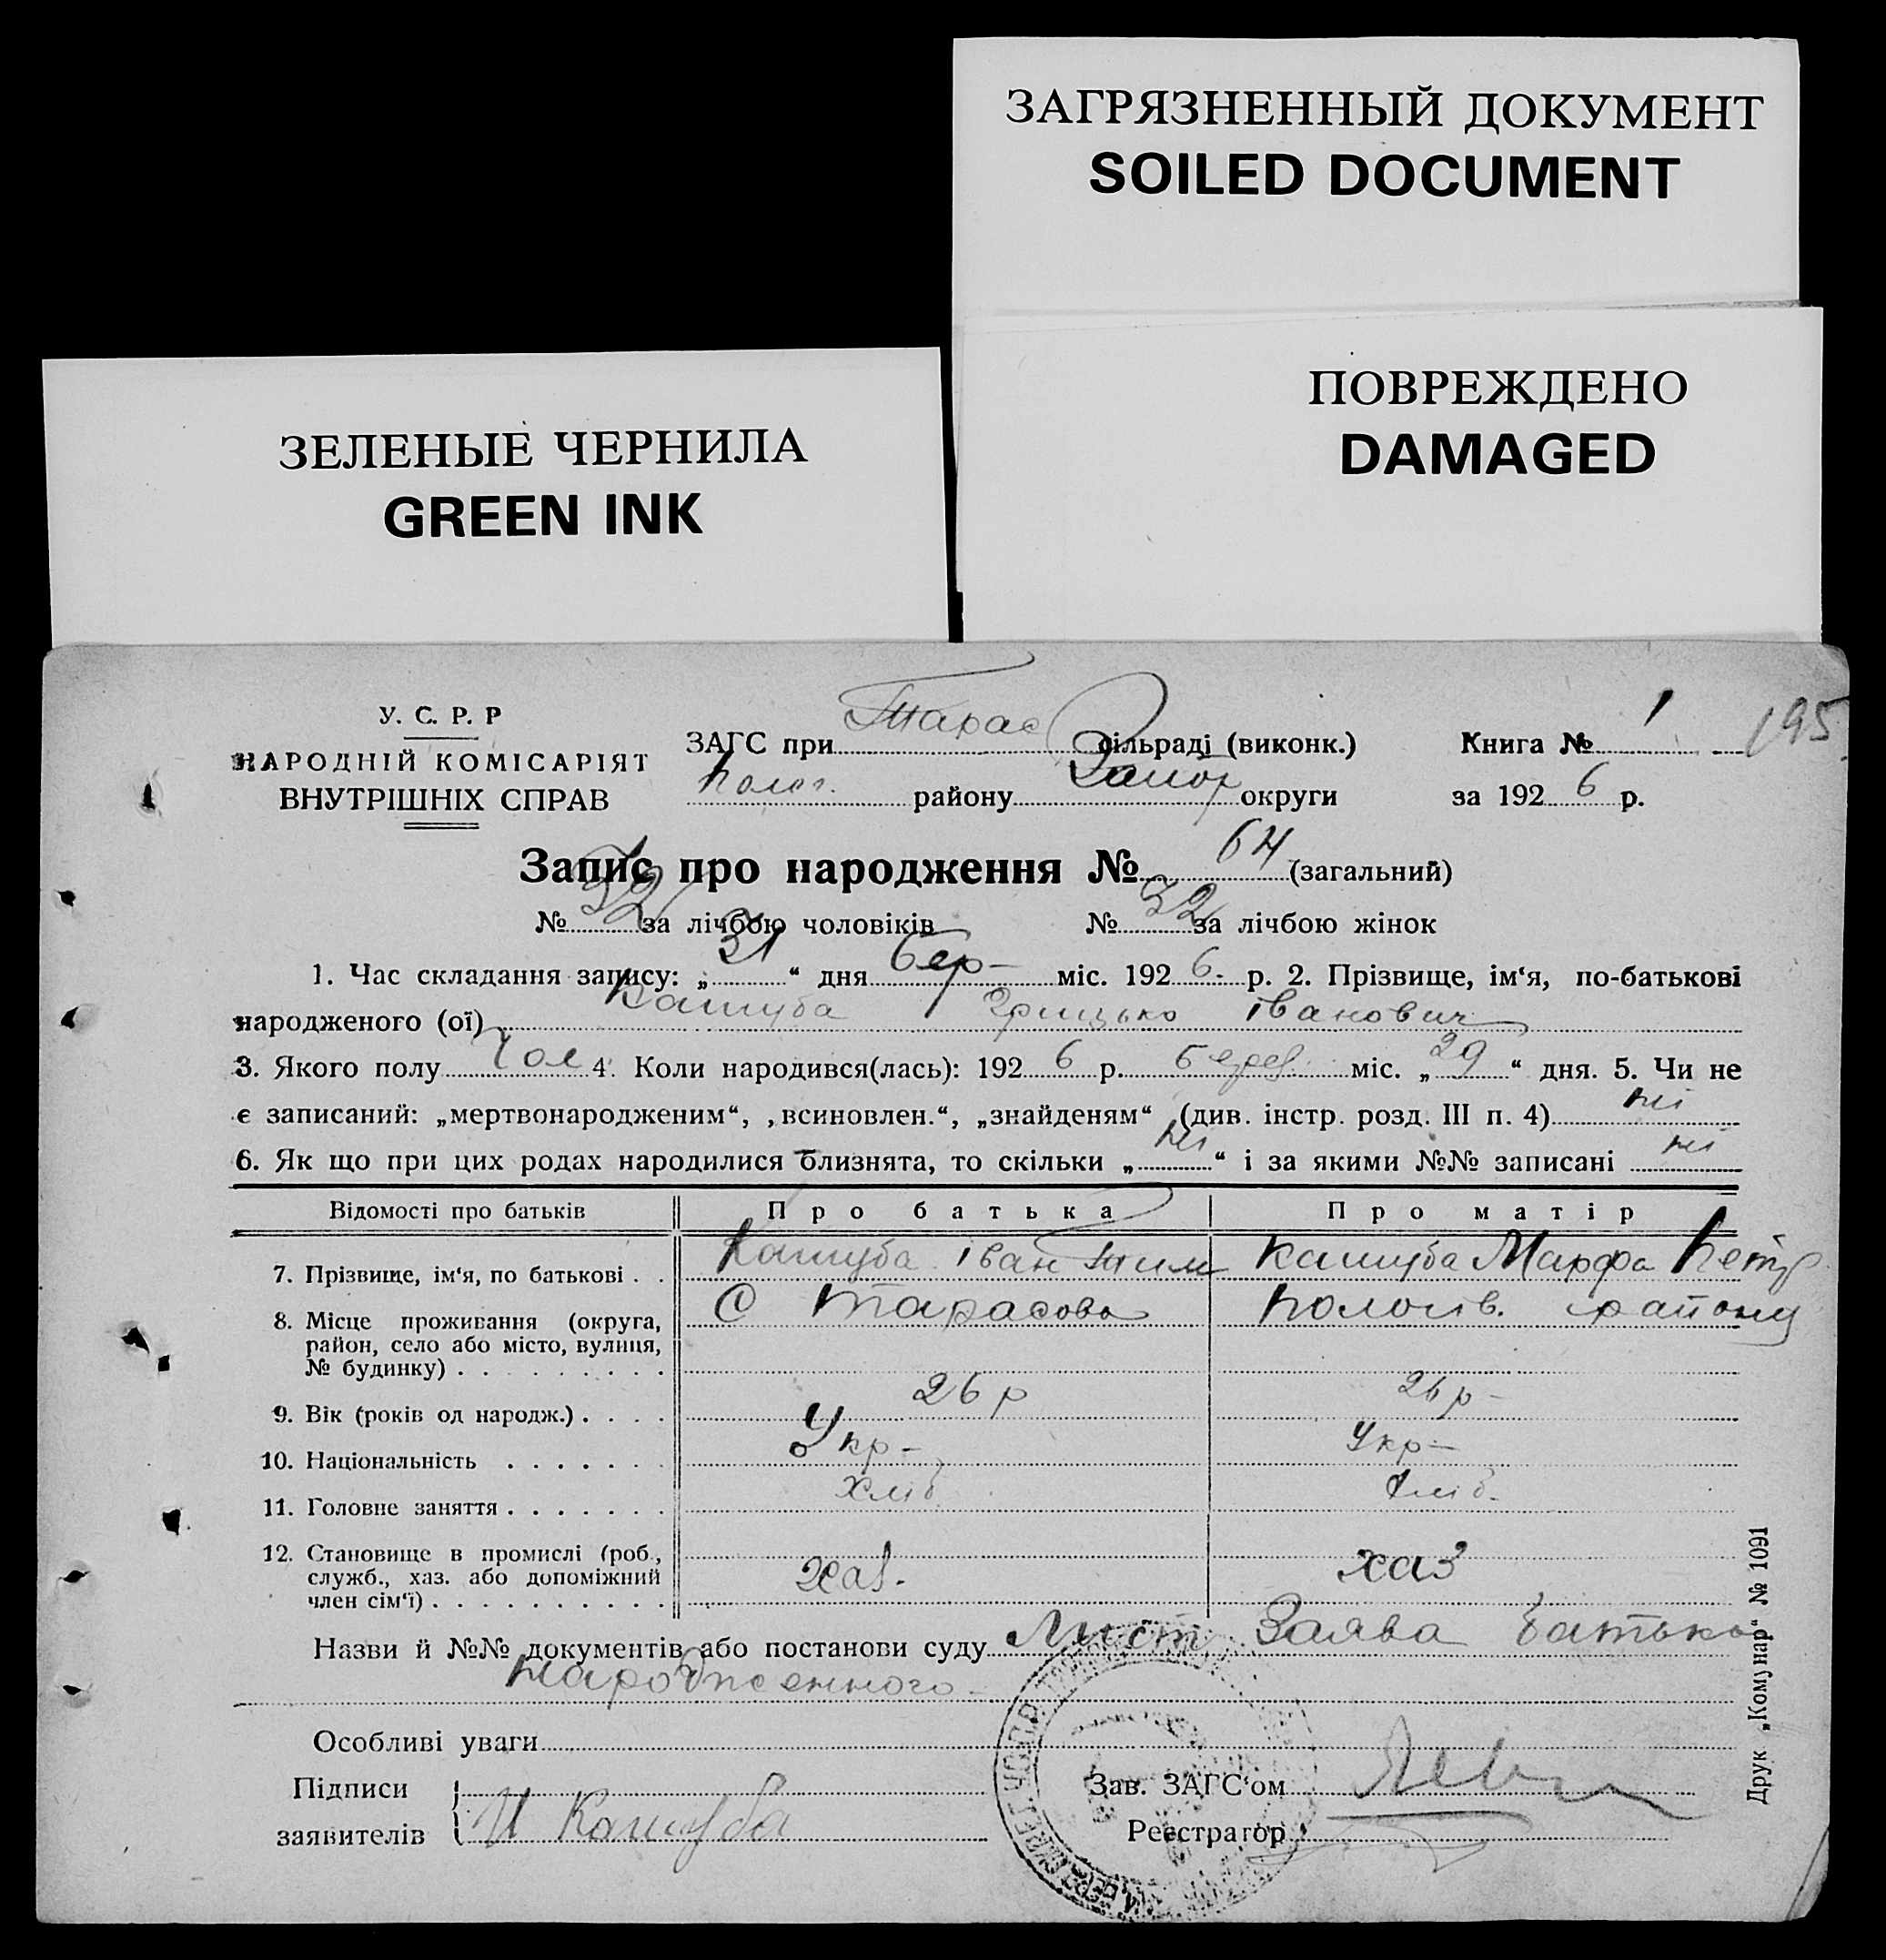 ЗАГРЯЗНЕННЫЙ ДОКУМЕНТ
SOILED DOCUMENT
ПОВРЕЖДЕНО
DAMAGED
ЗЕЛЕНЫЕ ЧЕРНИЛА
GREEN INK
У. С. Р. Р
НАРОДНІЙ КОМІСАРІЯТ
ВНУТРІШНІХ СПРАВ
ЗАГС при Тарас сільраді (виконк.) Книга № 1 195
Полог. району Запор округи за 192 6 р.
Запис про народження № 64 (загальний)
№ 32 за лічбою чоловіків № 32 за лічбою жінок
1. Час складання запису: „ 31 “ дня бер- міс. 192 6. р. 2. Прізвище, ім‘я, по-батькові
народженого (ої) Кашуба Грицько Іванович
3. Якого полу Чол 4. Коли народився(лась): 192 6 р. берез. міс. „ 29 “ дня. 5. Чи не
є записаний: „мертвонародженим“, „всиновлен.“, „знайденям“ (див. інстр. розд. III п. 4) ні
6. Як що при цих родах народилися близнята, то скільки „ ні “ і за якими №№ записані ні
Відомості про батьків Про батька Про матір
7. Прізвище, ім‘я, по батькові . . Кашуба Іван Тим Кашуба Марфа Петр
8. Місце проживання (округа, район, село або місто, вулиця, № будинку) . . . . . . . . . С Тарасова Пологів. району
9. Вік (років од народж.) . . . . 26 р 26 р-
10. Національність . . . . . . . Укр- Укр-
11. Головне заняття . . . . . . . Хліб Хліб.
12. Становище в промислі (роб., служб., хаз. або допоміжний член сім‘ї) . . . . . . . . . . Хаз. хаз
Назви й №№ документів або постанови суду Лист Заява батька
народженного-
Особливі уваги
Підписи
заявителів И Кашуба
Зав. ЗАГС‘ом
Реєстратор
Друк „Комунар“ № 1091